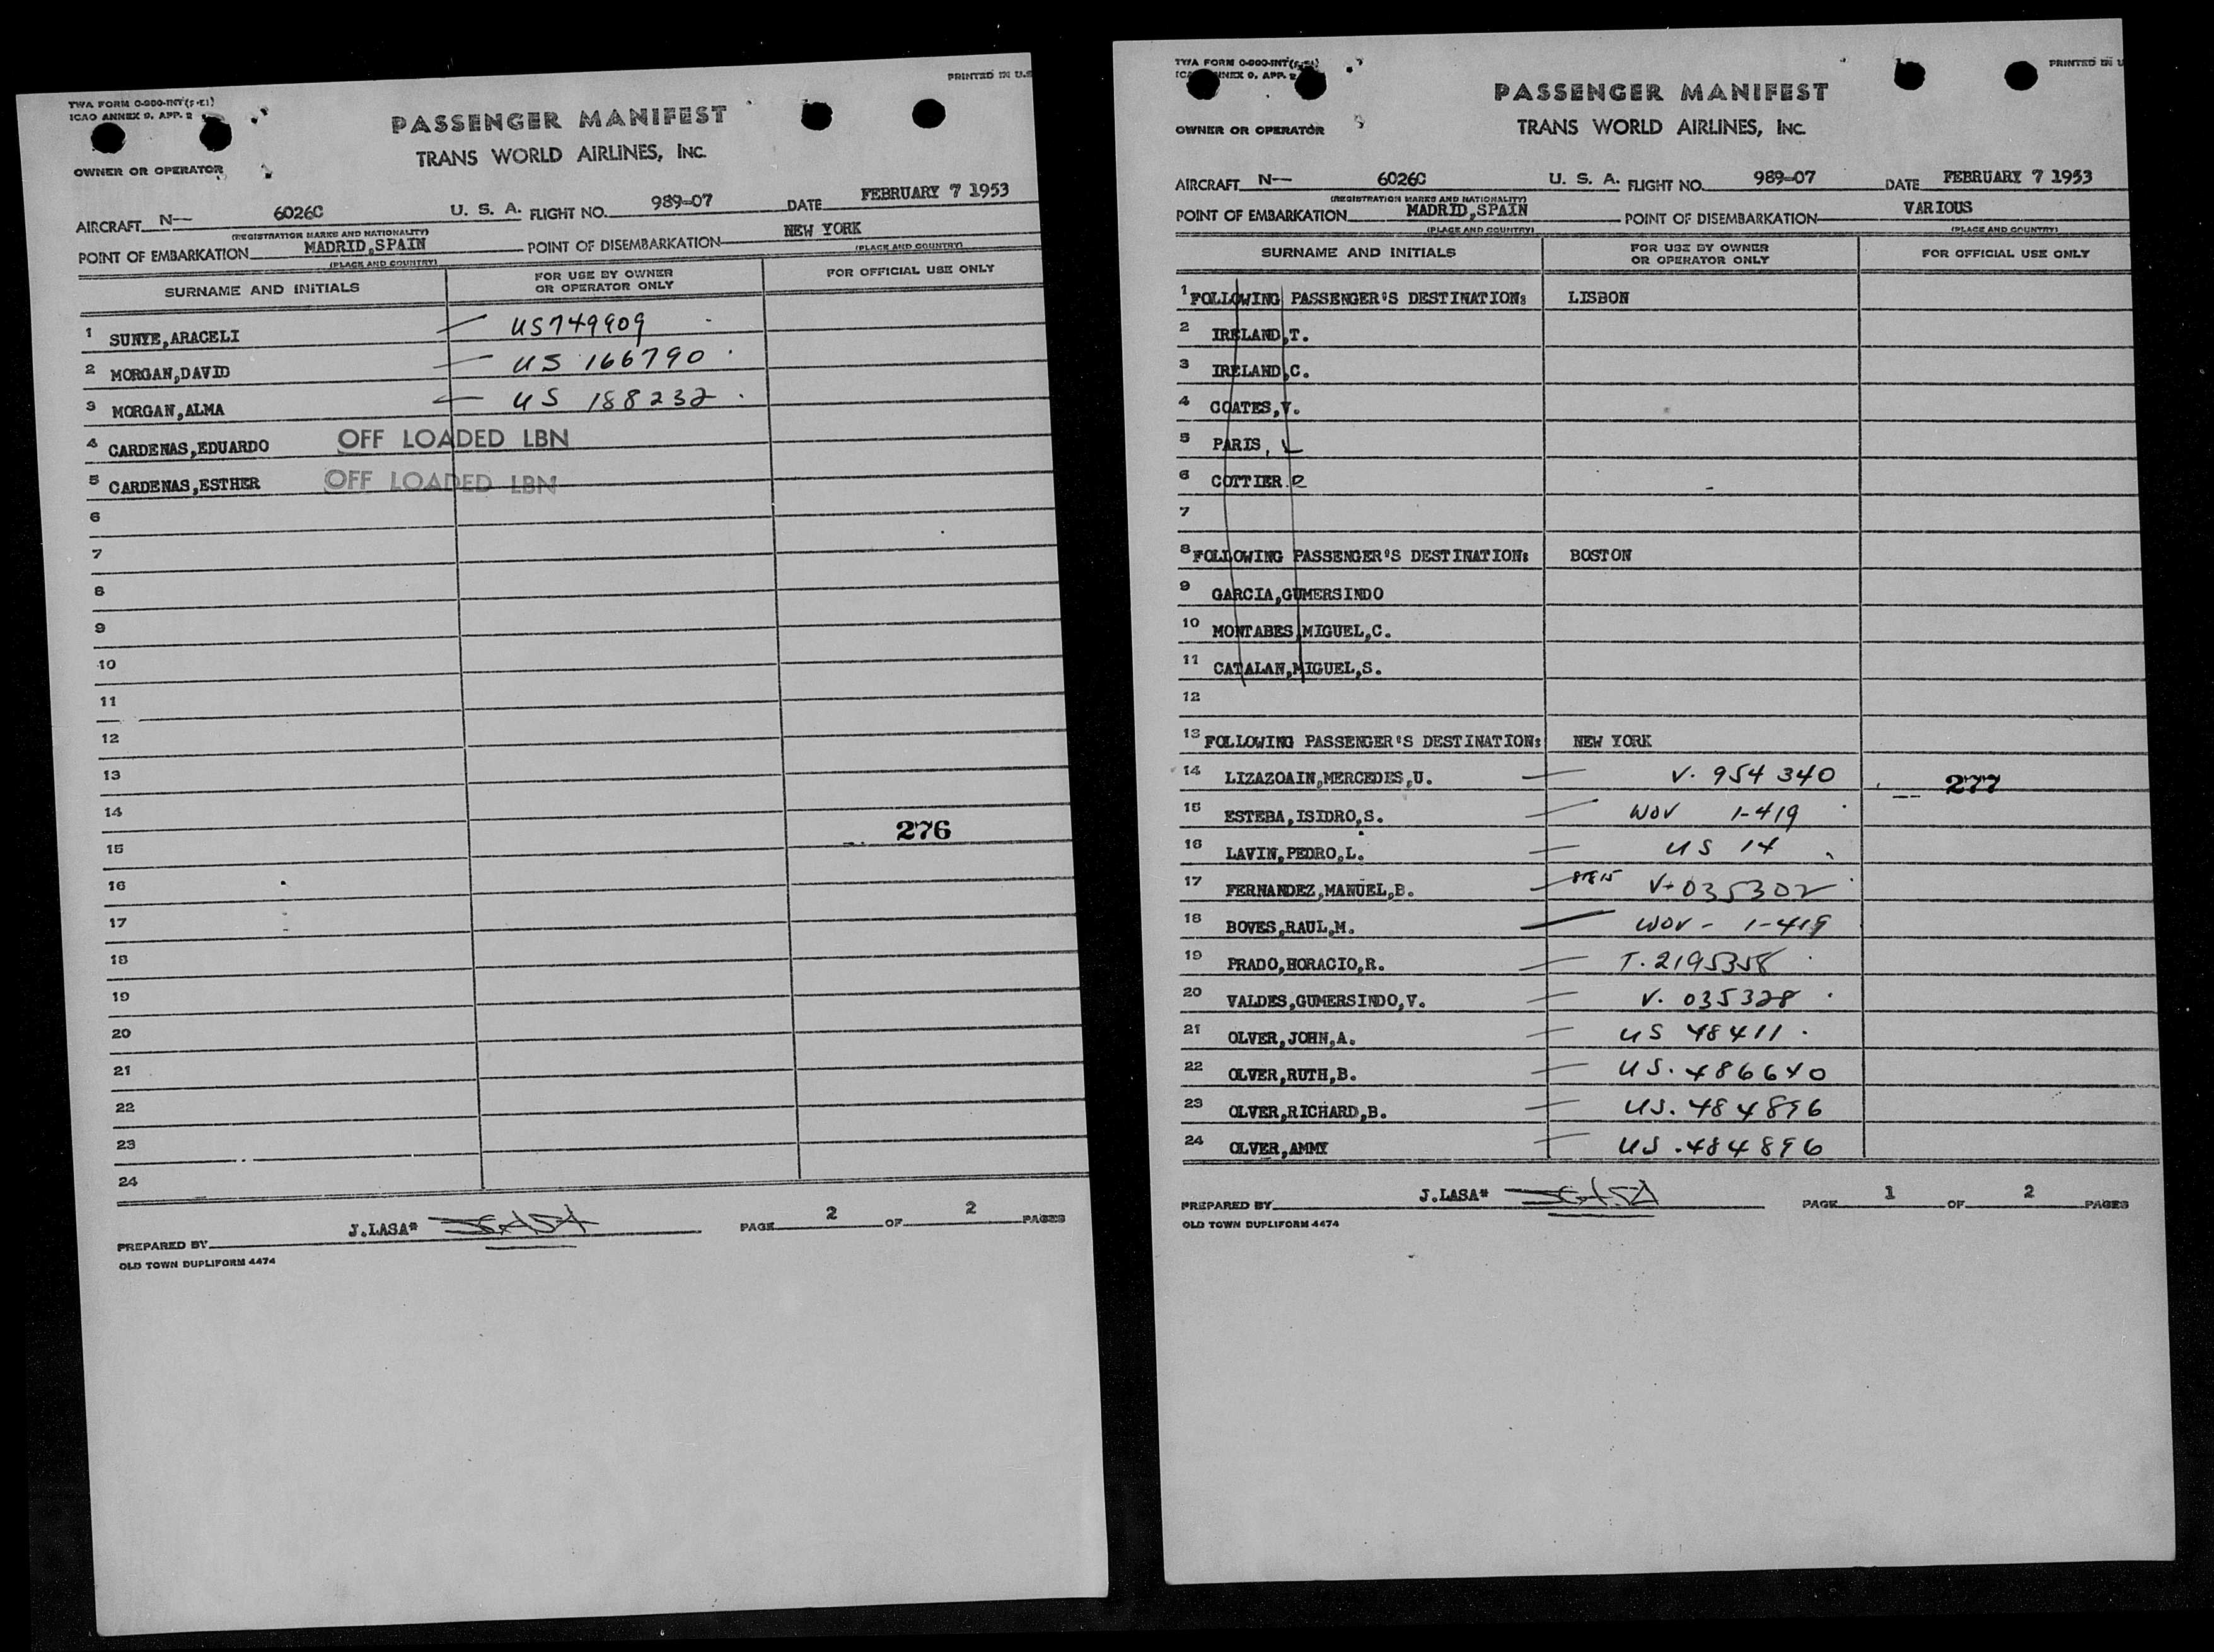 TWA FORM 0-900-INT
ICAO ANNEX 9, APP. 2
PRINTED IN U.S
PASSENGER MANIFEST
TRANS WORLD AIRLINES, INC.
OWNER OR OPERATOR
AIRCRAFT N-- 6026C U. S. A. FLIGHT NO. 989-07 DATE FEBRUARY 7 1953
(REGISTRATION MARKS AND NATIONALITY)
POINT OF EMBARKATION MADRID,SPAIN POINT OF DISEMBARKATION NEW YORK
(PLACE AND COUNTRY) (PLACE AND COUNTRY)
SURNAME AND INITIALS FOR USE BY OWNER OR OPERATOR ONLY FOR OFFICIAL USE ONLY
1 SUNYE,ARACELI US749909
2 MORGAN,DAVID US 166790
3 MORGAN,ALMA US 188232
4 CARDENAS,EDUARDO OFF LOADED LBN
5 CARDENAS,ESTHER OFF LOADED LBN
6
7
8
9
10
11
12
13
14
276
15
16
17
18
19
20
21
22
23
24
PREPARED BY J.LASA* PAGE 2 OF 2 PAGES
OLD TOWN DUPLIFORM 4474
TWA FORM 0-900-INT
ICAO ANNEX 9, APP. 2
PRINTED IN U
PASSENGER MANIFEST
TRANS WORLD AIRLINES, INC.
OWNER OR OPERATOR
AIRCRAFT N-- 6026C U. S. A. FLIGHT NO. 989-07 DATE FEBRUARY 7 1953
(REGISTRATION MARKS AND NATIONALITY)
POINT OF EMBARKATION MADRID,SPAIN POINT OF DISEMBARKATION VARIOUS
(PLACE AND COUNTRY) (PLACE AND COUNTRY)
SURNAME AND INITIALS FOR USE BY OWNER OR OPERATOR ONLY FOR OFFICIAL USE ONLY
1 FOLLOWING PASSENGER'S DESTINATION: LISBON
2 IRELAND,T.
3 IRELAND,C.
4 COATES,V.
5 PARIS, L
6 COTTIER.
7
8 FOLLOWING PASSENGER'S DESTINATION: BOSTON
9 GARCIA,GUMERSINDO
10 MONTABES,MIGUEL,C.
11 CATALAN,MIGUEL,S.
12
13 FOLLOWING PASSENGER'S DESTINATION: NEW YORK
14 LIZAZOAIN,MERCEDES,U. V. 954340 277
15 ESTEBA,ISIDRO,S. WOV 1-419
16 LAVIN,PEDRO,L. US 14
17 FERNANDEZ,MANUEL,B. V-035302
18 BOVES,RAUL,M. WOV - 1-419
19 PRADO,HORACIO,R. T. 2195358
20 VALDES,GUMERSINDO,V. V. 035328
21 OLVER,JOHN,A. US 48411
22 OLVER,RUTH,B. US. 486640
23 OLVER,RICHARD,B. US. 484896
24 OLVER,AMMY US. 484896
PREPARED BY J.LASA* PAGE 1 OF 2 PAGES
OLD TOWN DUPLIFORM 4474